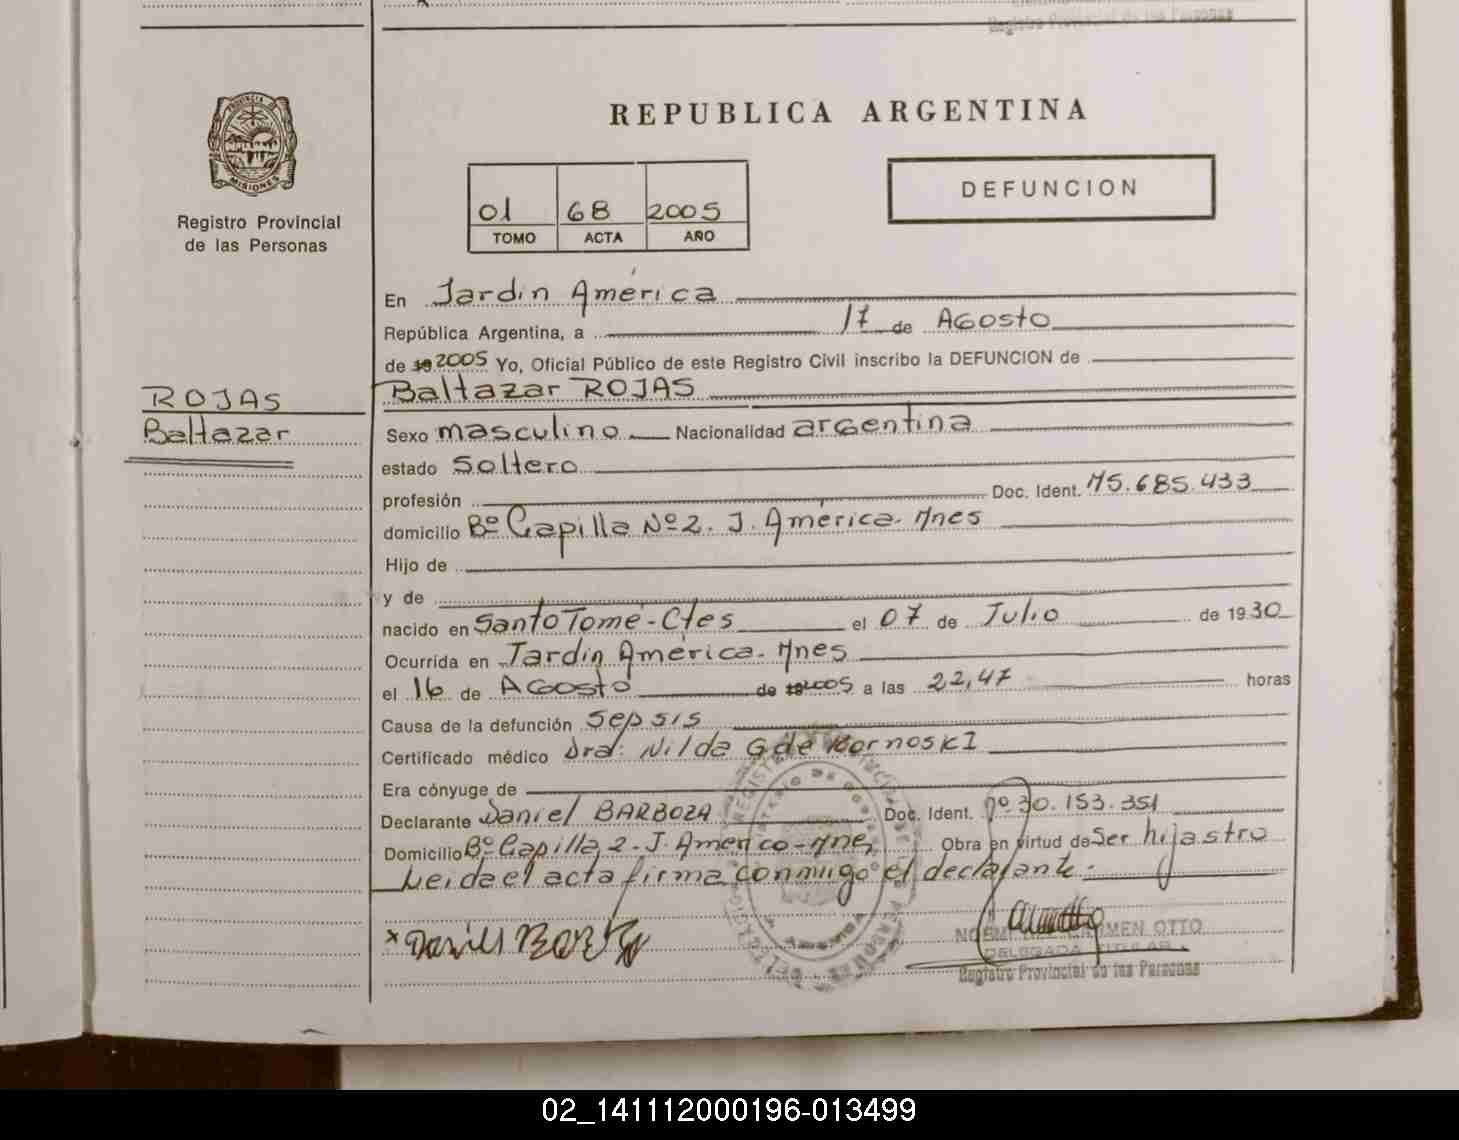 REPUBLICA ARGENTINA
PROVINCIA DE
MISIONES
Registro Provincial
de las Personas
01 68 2005
TOMO ACTA AÑO
DEFUNCION
En Jardin América
República Argentina, a 17 de AGosto
de 19 2005 Yo, Oficial Público de este Registro Civil inscribo la DEFUNCION de
ROJAS
Baltazar
Baltazar ROJAS
Sexo masculino Nacionalidad arGentina
estado Soltero
profesión Doc. Ident. M5.685.433
domicilio Bº Capilla Nº 2. J. América. Mnes
Hijo de
y de
nacido en Santo Tomé - Ctes el 07 de Julio de 1930
Ocurrida en Jardin América. Mnes
el 16 de AGosto de 2005 a las 22,47 horas
Causa de la defunción Sepsis
Certificado médico Dra. Nilda G de BornoskI
Era cónyuge de
Declarante Daniel BARBOZA Doc. Ident. nº 30.153.351
Domicilio Bº Capilla 2 - J. America - Mnes Obra en virtud de Ser hijastro
Leida el acta firma conmigo el declarante.
x Daniel
OTTO
DELEGADA TITULAR
Registro Provincial de las Personas
02_141112000196-013499